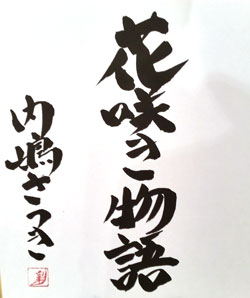 花咲き物語
内嶋さつき